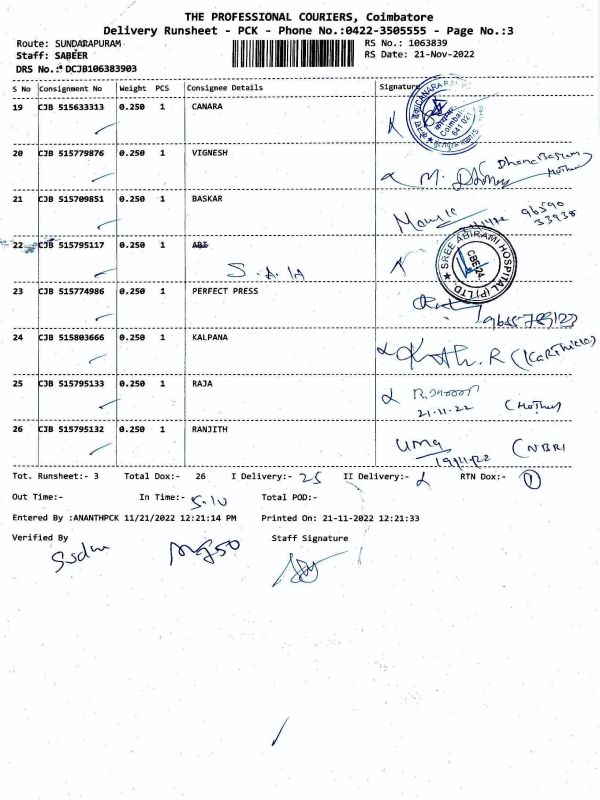 THE PROFESSIONAL COURIERS, Coimbatore
Delivery Runsheet - PCK - Phone No.:0422-3505555 - Page No.:3
Route: SUNDARAPURAM RS No.: 1063839
Staff: SABEER RS Date: 21-Nov-2022
DRS No.: DCJB106383903
S No Consignment No Weight PCS Consignee Details Signature
19 CJB 515633313 0.250 1 CANARA
Coimbatore
641 021
20 CJB 515779876 0.250 1 VIGNESH
M.
Mother
21 CJB 515709851 0.250 1 BASKAR
96590
33938
22 CJB 515795117 0.250 1 ABI
SREE ABIRAMI HOSPITAL (P) LTD.
CBE-24
S.A.IA
23 CJB 515774986 0.250 1 PERFECT PRESS
24 CJB 515803666 0.250 1 KALPANA
25 CJB 515795133 0.250 1 RAJA
21.11.22 (Mother)
26 CJB 515795132 0.250 1 RANJITH
Uma (NBRI
Tot. Runsheet:- 3 Total Dox:- 26 I Delivery:- 25 II Delivery:- RTN Dox:- 1
Out Time:- In Time:- 5.10 Total POD:-
Entered By :ANANTHPCK 11/21/2022 12:21:14 PM Printed On: 21-11-2022 12:21:33
Verified By Staff Signature